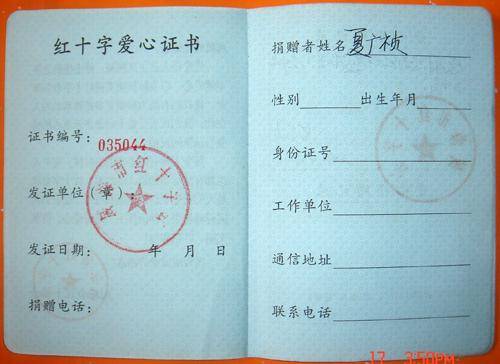 红十字爱心证书
证书编号：
035044
市红十字会
发证单位（章）：
发证日期： 年 月 日
捐赠电话：
捐赠者姓名 夏广桢
性别 出生年月
身份证号
工作单位
通信地址
联系电话
17 3:50PM